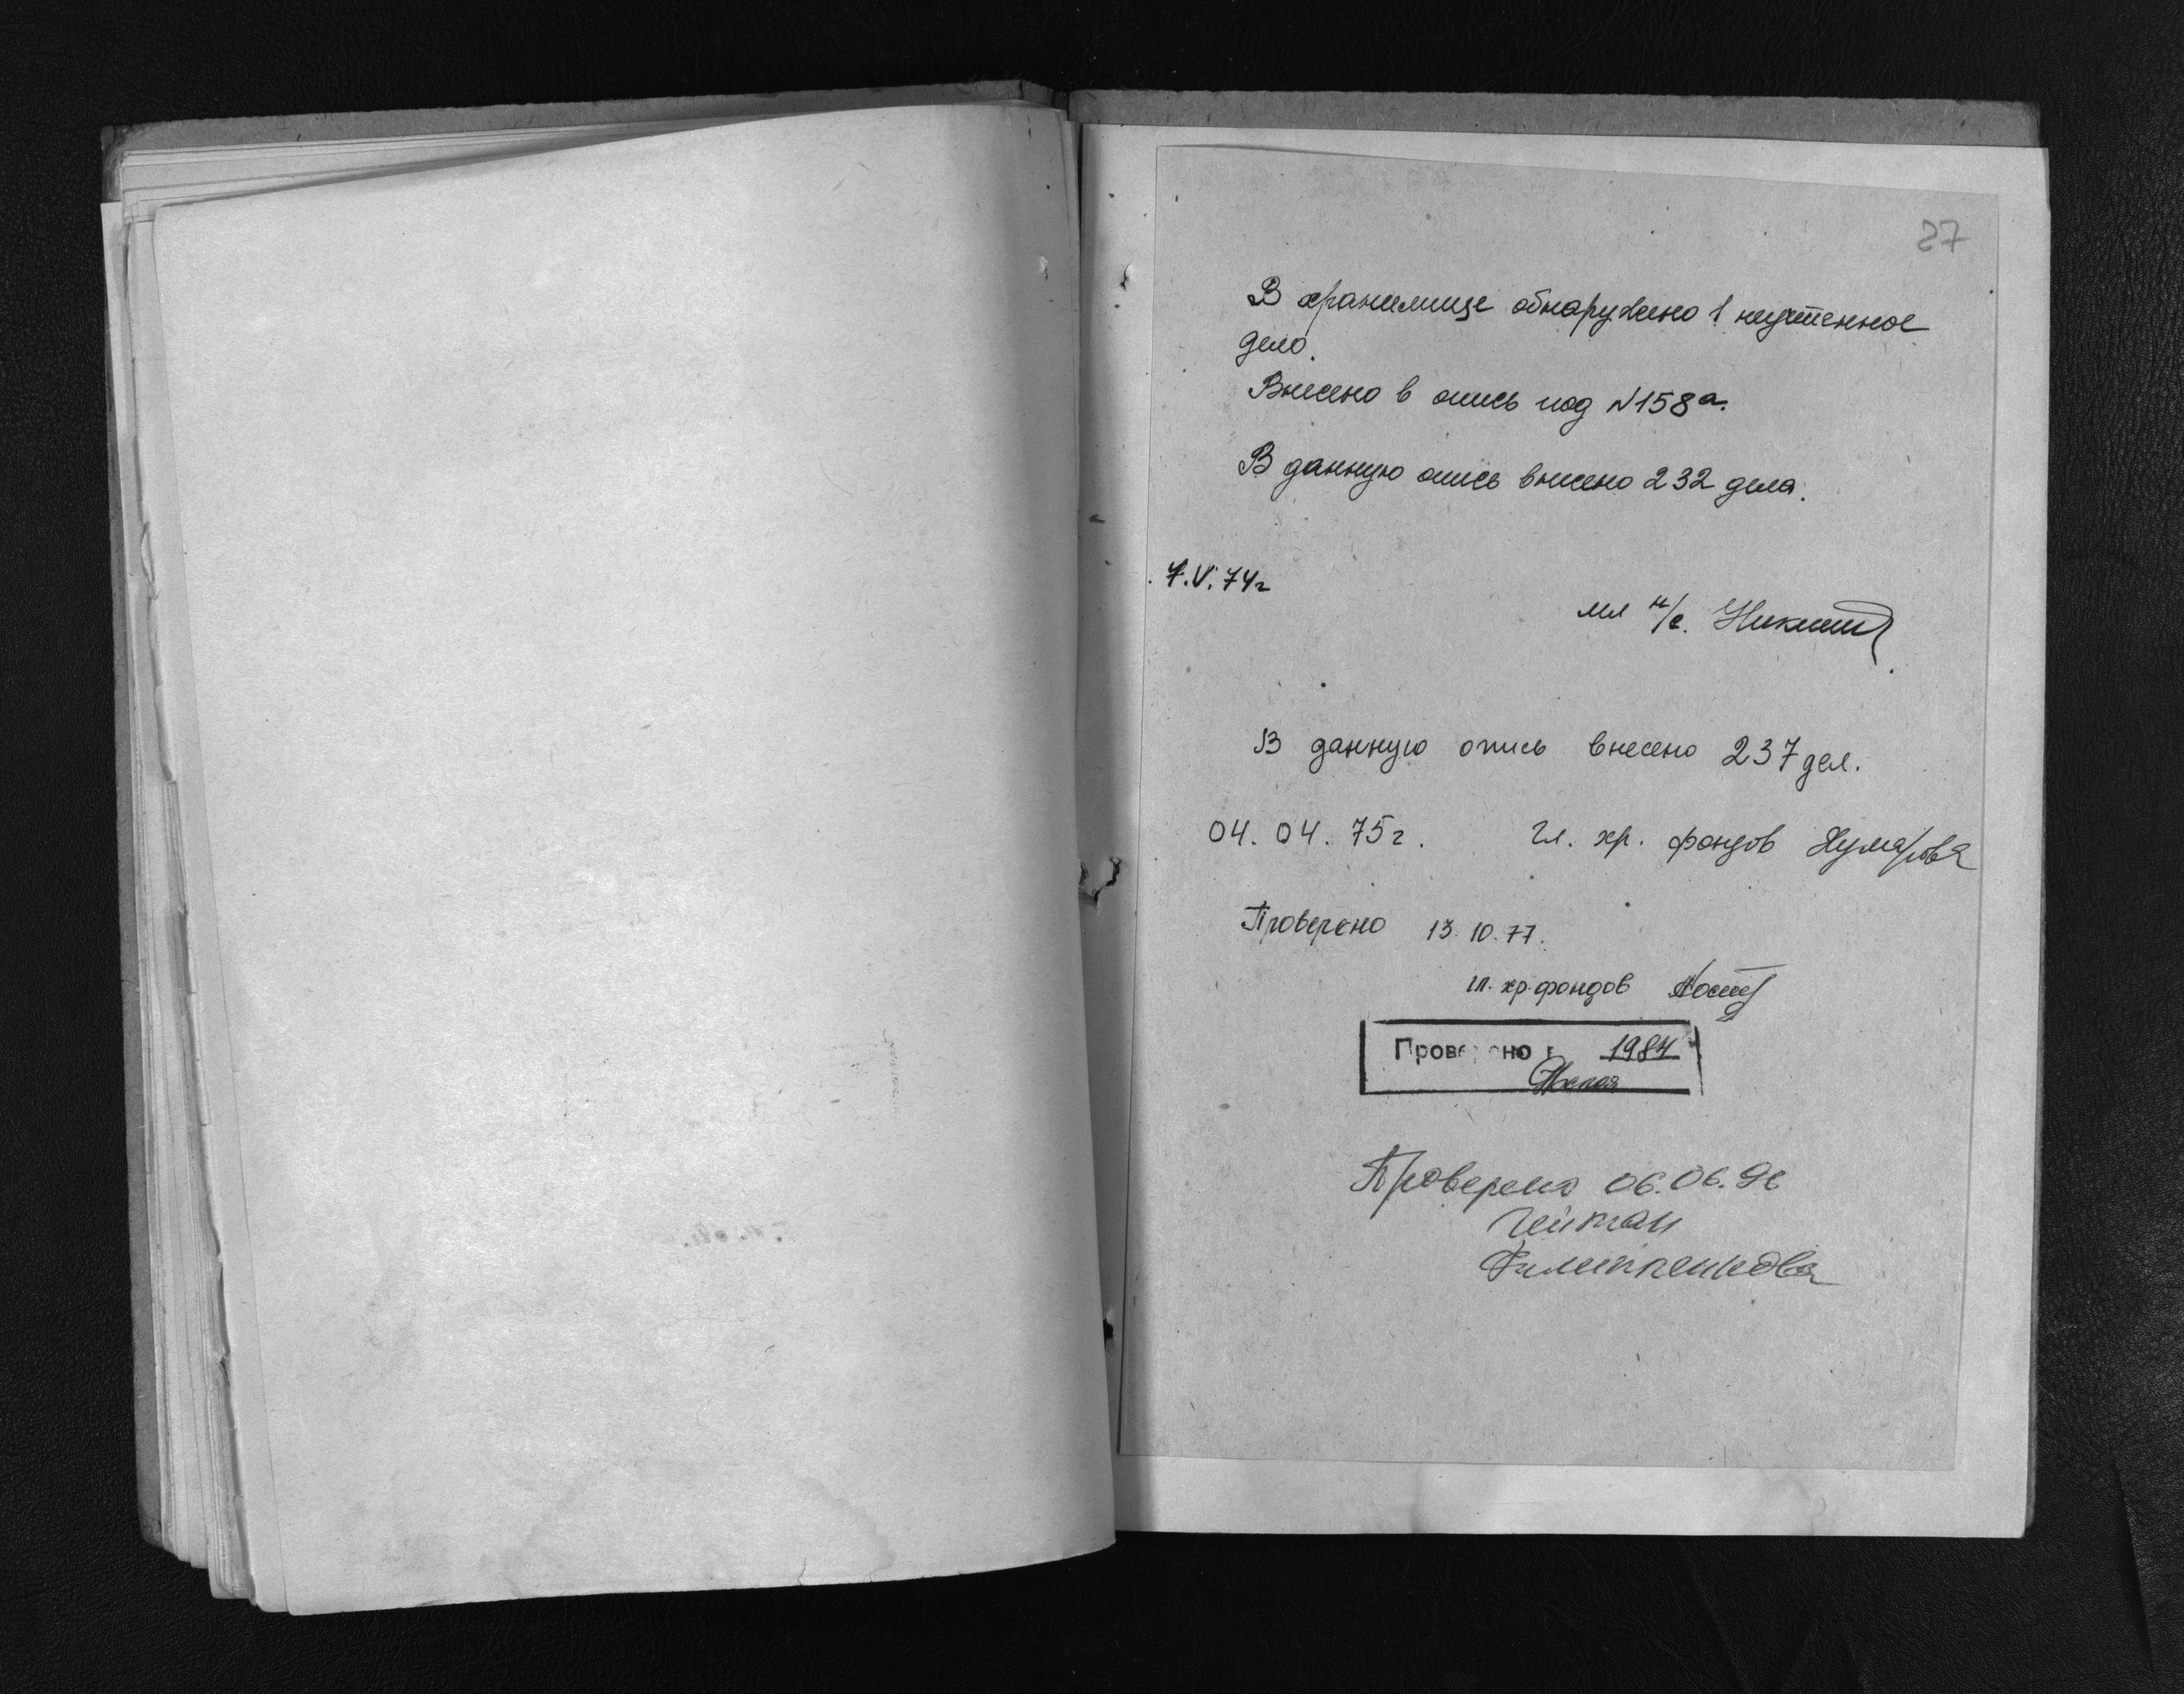 27
В хранилище обнаружено 1 неучтенное
дело.
Внесено в опись под N158а.
В данную опись внесено 232 дела.
7.V.74г
мл н/с.
В данную опись внесено 237 дел.
04.04.75г. Гл. хр. фондов
Проверено 13.10.77.
гл. хр. фондов
Проверено 1984
Проверено 06.06.96